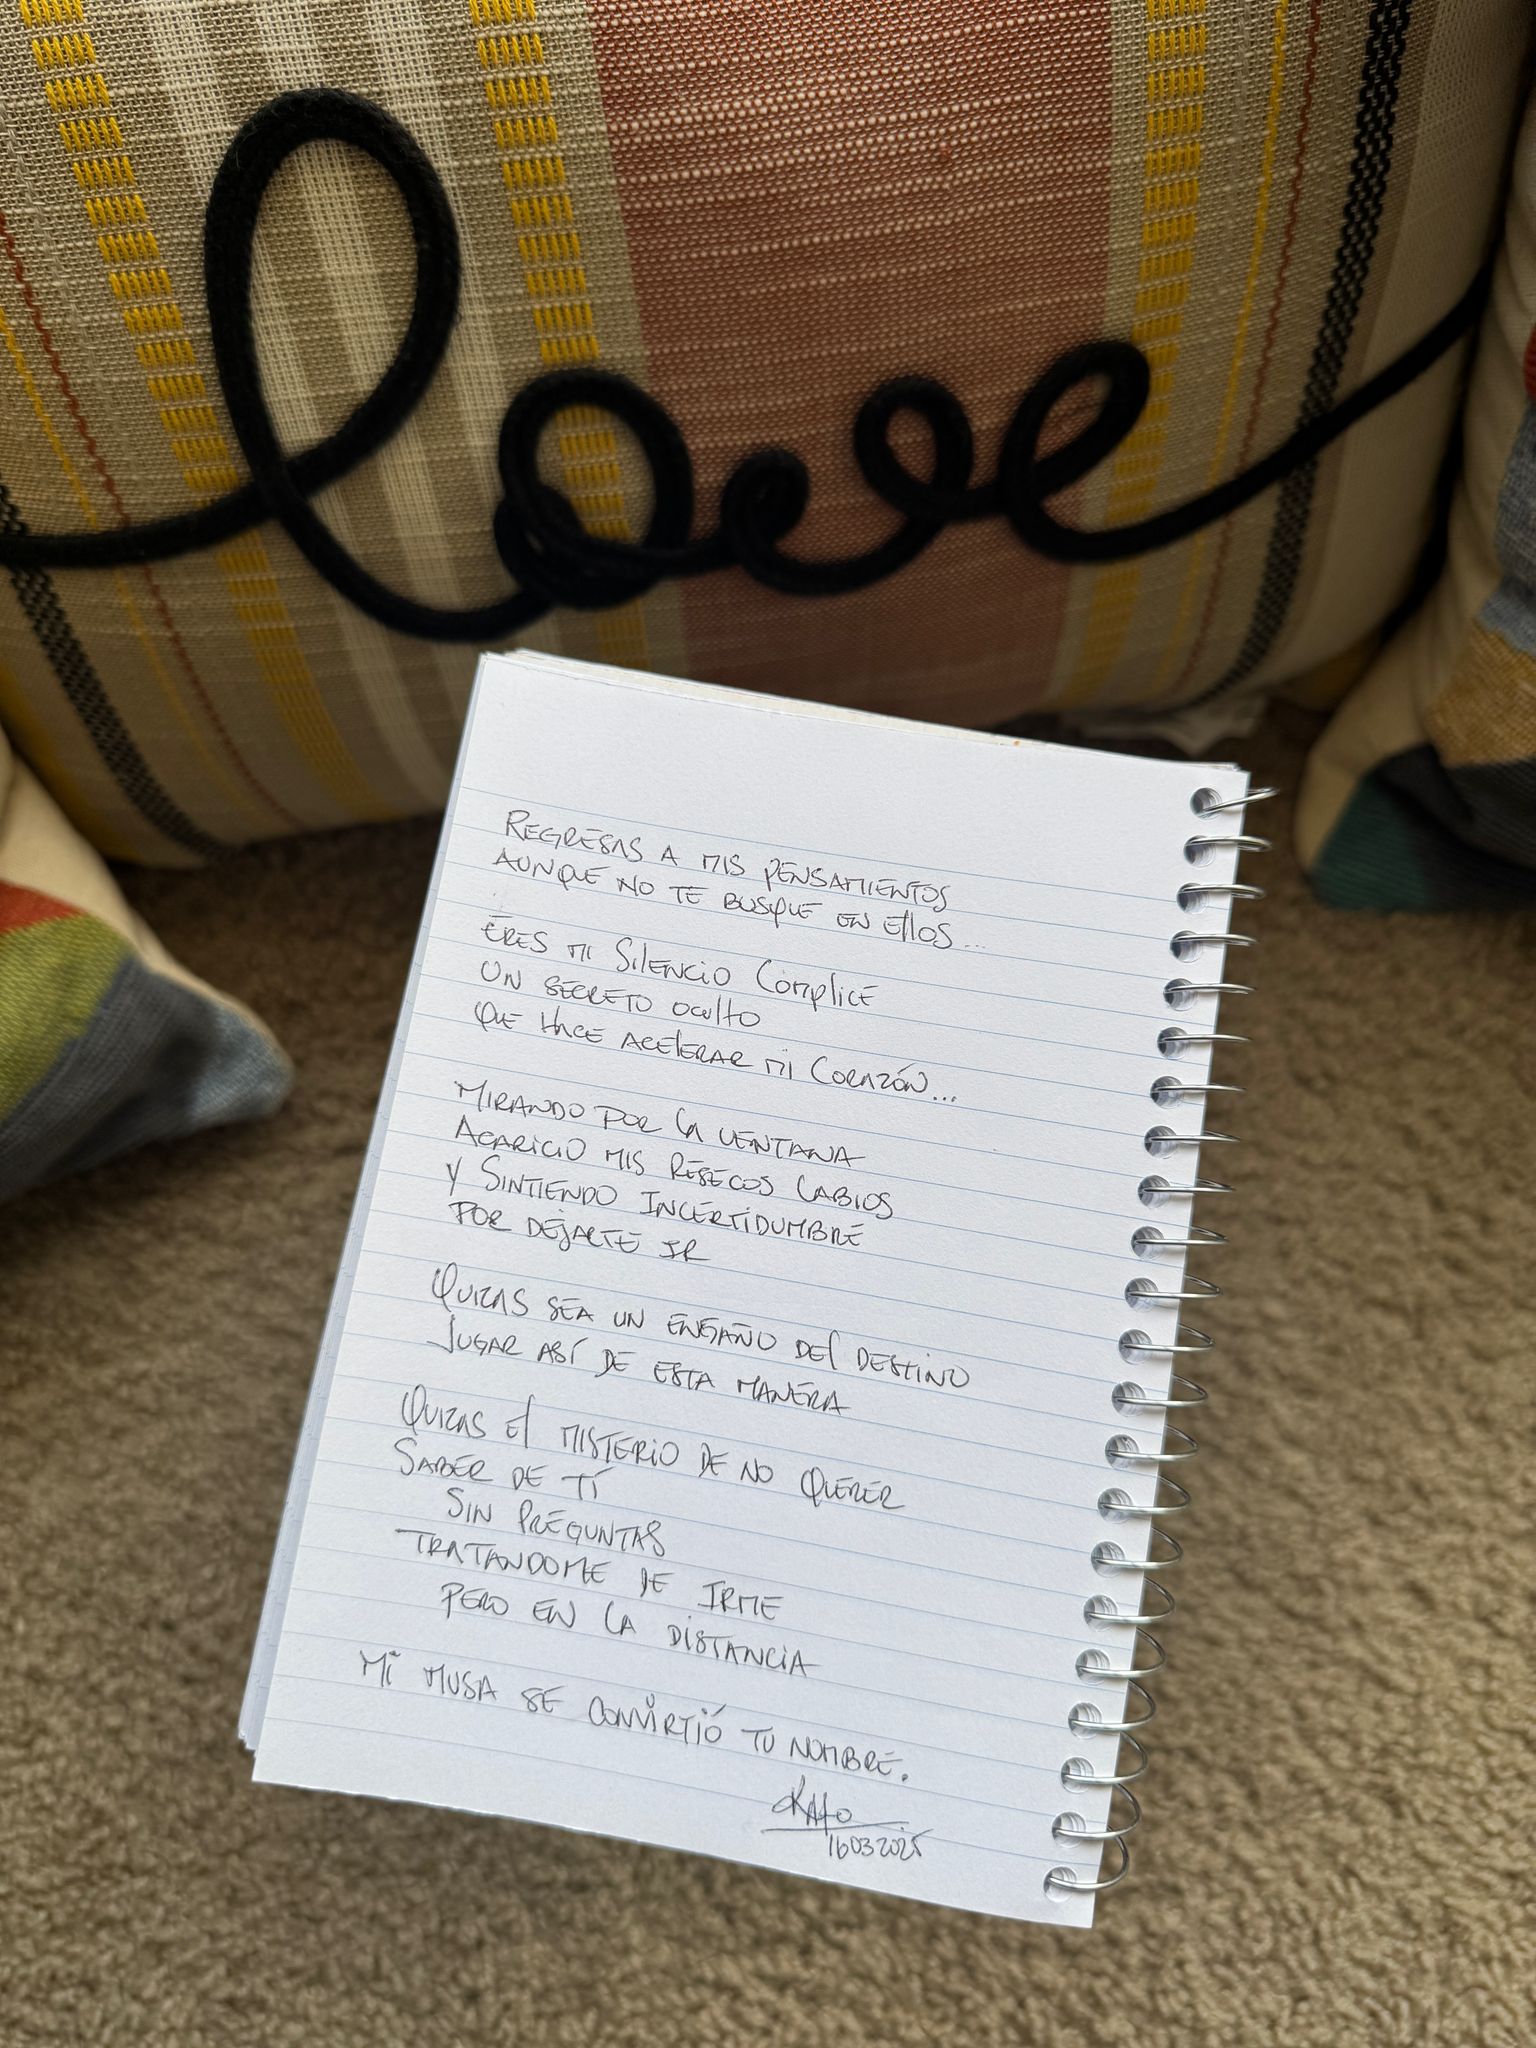 love
REGRESAS A MIS PENSAMIENTOS
AUNQUE NO TE BUSQUE EN EllOS...
ERES MI SilENCiO CÓMPliCE
UN SECRETO OCulTO
QUE HACE ACElERAR Mi CORAZÓN...
MIRANDO POR lA VENTANA
ACARICIO MIS RESECOS LABIOS
Y SINTIENDO INCERTIDUMBRE
POR DEJARTE IR
QUIZAS SEA UN ENGAÑO DEl DESTINO
JUGAR ASÍ DE ESTA MANERA
QUIZAS El MISTERiO DE NO QUERER
SABER DE TÍ
SIN PREGUNTAS
TRATANDOME DE IRME
PERO EN LA DiSTANCiA
Mi MUSA SE CONVIRTIÓ TU NOMBRE.
RAfo
16032025